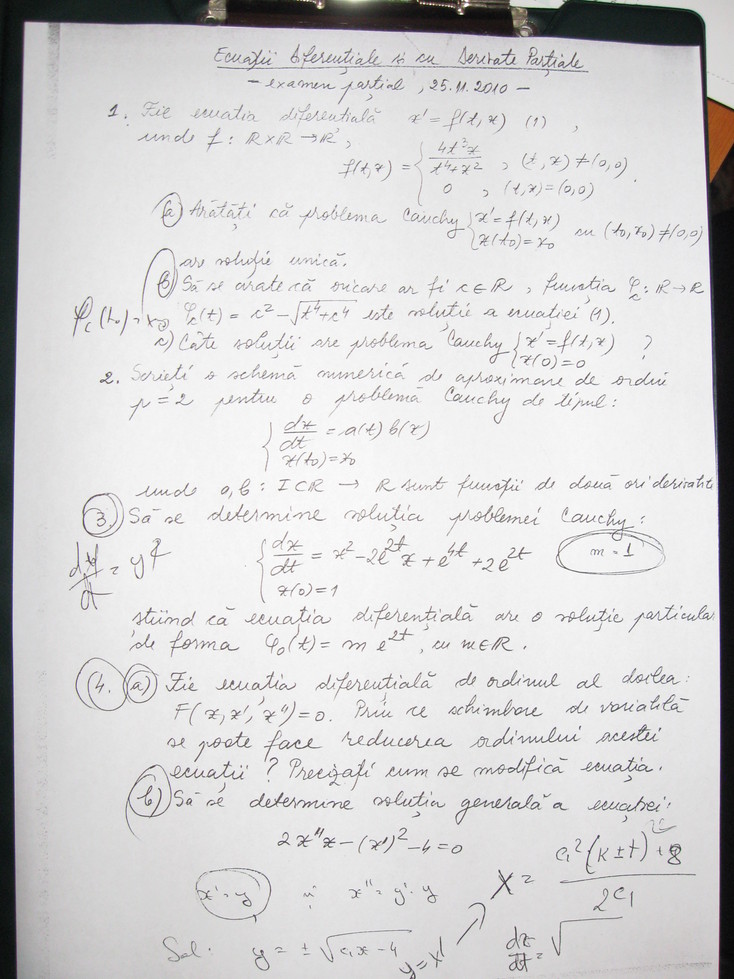 Ecuații Diferențiale și cu Derivate Parțiale
- examen parțial, 25.11.2010 -
1. Fie ecuația diferențială x' = f(t,x) (1) ,
unde f : R×R → R ,
f(t,x) = { 4t³x / (t⁴+x²) , (t,x) ≠ (0,0)
0 , (t,x) = (0,0) .
a) Arătați că problema Cauchy { x' = f(t,x) cu (t₀,x₀) ≠ (0,0)
x(t₀) = x₀
are soluție unică.
b) Să se arate că oricare ar fi c ∈ R , funcția φc : R → R
φc(t₀) = x₀
φc(t) = c² - √(t⁴+c⁴) este soluție a ecuației (1).
c) Câte soluții are problema Cauchy { x' = f(t,x) ?
x(0) = 0
2. Scrieți o schemă numerică de aproximare de ordin
p = 2 pentru o problemă Cauchy de tipul :
{ dx/dt = a(t) b(x)
x(t₀) = x₀
unde a, b : I ⊂ R → R sunt funcții de două ori derivabile
3. Să se determine soluția problemei Cauchy :
{ dx/dt = x² - 2e^{2t} x + e^{4t} + 2e^{2t}
m = 1
x(0) = 1
știind că ecuația diferențială are o soluție particulară
de forma φ₀(t) = m e^{2t} , cu m ∈ R .
4. a) Fie ecuația diferențială de ordinul al doilea :
F(x, x', x'') = 0. Prin ce schimbare de variabilă
se poate face reducerea ordinului acestei
ecuații ? Precizați cum se modifică ecuația.
b) Să se determine soluția generală a ecuației :
2x''x - (x')² - 4 = 0
x' = y și x'' = y' · y
Sol : y = ± √(c₁x - 4)
y = x'